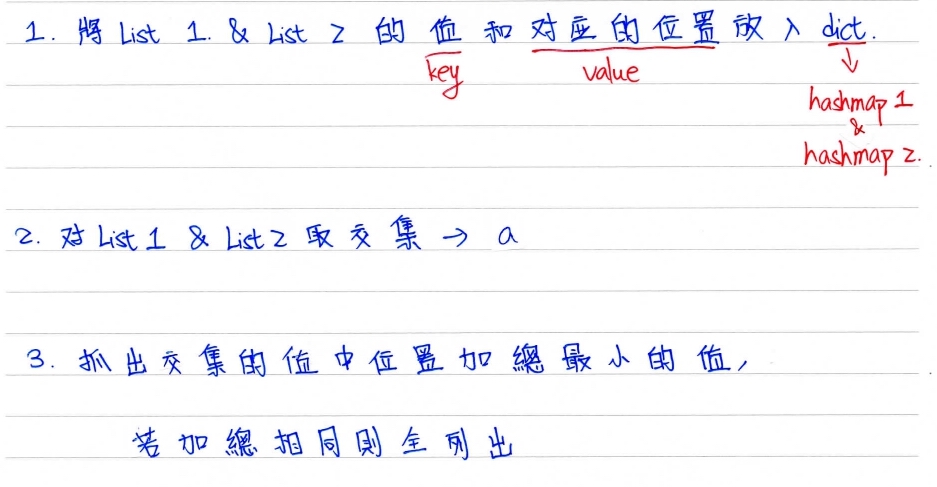 1. 將 List 1. & List 2 的 值 和 对应的位置 放入 dict.
key value ↓
hashmap 1
&
hashmap 2.
2. 对 List 1 & List 2 取交集 → a
3. 抓出交集的值中位置加總最小的值,
若加總相同則全列出